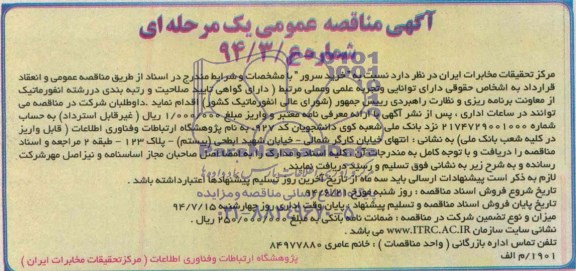 آگهی مناقصه عمومی یک مرحله ای
شماره ع/۹۴/۳
مرکز تحقیقات مخابرات ایران در نظر دارد نسبت به "خرید سرور" با مشخصات و شرایط مندرج در اسناد از طریق مناقصه عمومی و انعقاد
قرارداد به اشخاص حقوقی دارای توانایی وتجربه علمی وعملی مرتبط ( دارای گواهی تایید صلاحیت و رتبه بندی دررشته انفورماتیک
از معاونت برنامه ریزی و نظارت راهبردی رییس جمهور (شورای عالی انفورماتیک کشور) اقدام نماید .داوطلبان شرکت در مناقصه می
توانند در ساعات اداری ، پس از نشر آگهی با ارائه معرفی نامه معتبر و واریز مبلغ ۱/۰۰۰/۰۰۰ ریال (غیرقابل استرداد) به حساب
شماره ۲۱۷۴۷۲۹۰۰۱۰۰۰ نزد بانک ملی شعبه کوی دانشجویان کد ۹۲۷ به نام پژوهشگاه ارتباطات وفناوری اطلاعات ( قابل واریز
در کلیه شعب بانک ملی) به نشانی : انتهای خیابان کارگر شمالی - خیابان شهید ابطحی (بیستم) - پلاک ۱۲۳ - طبقه ۲ مراجعه و اسناد
مناقصه را دریافت و با توجه کامل به مندرجات آن، کلیه اسناد ومدارک را به امضا اصیل صاحبان مجاز اساسنامه و نیزاصل مهرشرکت
رسانده و به شرح زیر به نشانی فوق تسلیم و رسید دریافت نمایند.
لازم به ذکر است پیشنهادات ارسالی باید سه ماه از تاریخ آخرین روز تسلیم پیشنهادها اعتبارداشته باشد .
تاریخ شروع فروش اسناد مناقصه : روز شنبه مورخ ۹۴/۶/۲۱
تاریخ پایان فروش اسناد مناقصه و تسلیم پیشنهاد : پایان وقت اداری روز چهارشنبه ۹۴/۷/۱۵
میزان و نوع تضمین شرکت در مناقصه : ضمانت نامه بانکی به مبلغ ۲۵۰/۰۰۰/۰۰۰ ریال.
نشانی سایت سازمان WWW.ITRC.AC.IR می باشد .
تلفن تماس اداره بازرگانی (واحد مناقصات) : خانم عامری ۸۴۹۷۷۸۸۰
۱۹۰۱/م الف
پژوهشگاه ارتباطات وفناوری اطلاعات ( مرکزتحقیقات مخابرات ایران )